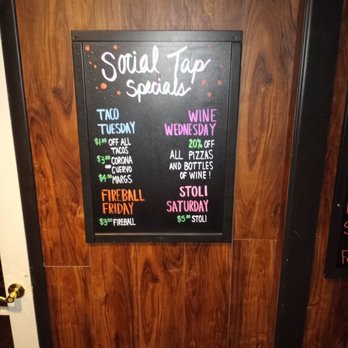 Social Tap
Specials
TACO
TUESDAY
$1.00 OFF ALL
TACOS
$3.00 CORONA
CUERVO
$4.00 MARGS
FIREBALL
FRIDAY
$3.00 FIREBALL
WINE
WEDNESDAY
20% OFF
ALL PIZZAS
AND BOTTLES
OF WINE!
STOLI
SATURDAY
$5.00 STOLI